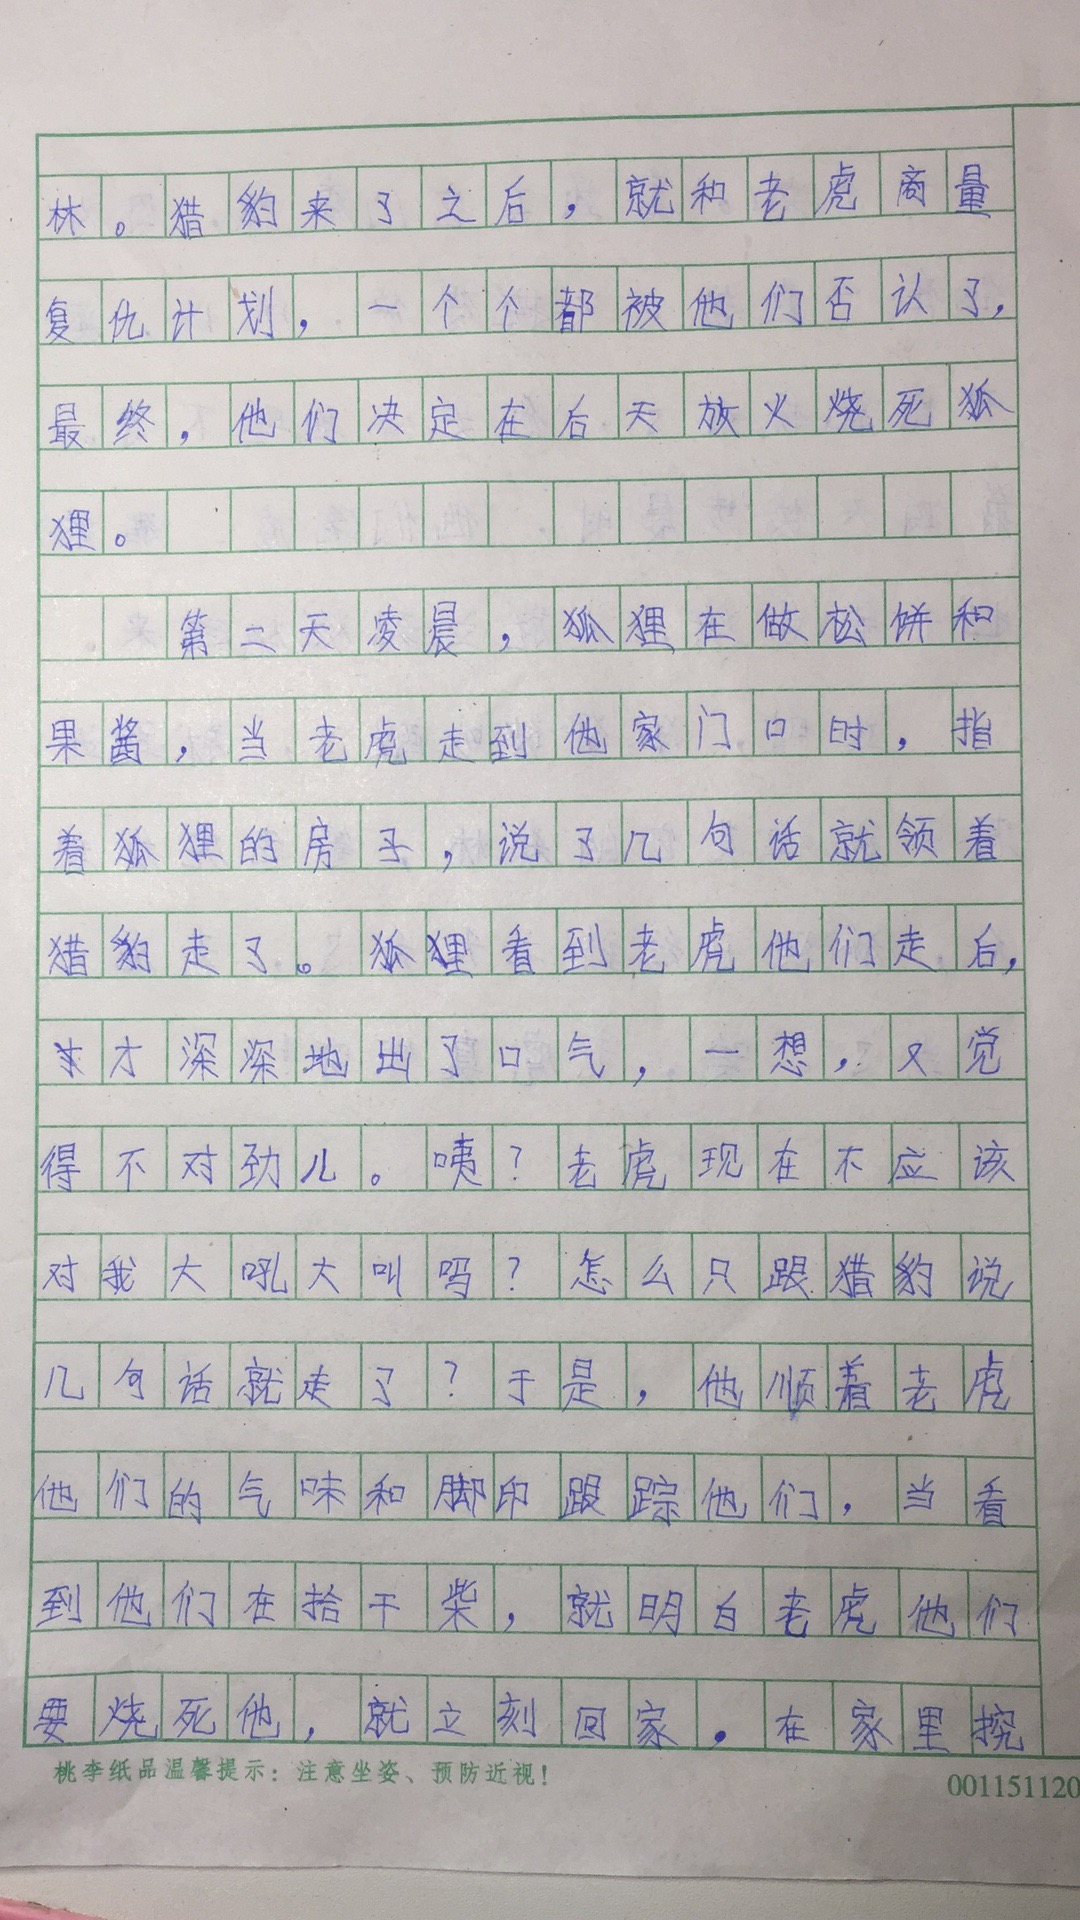 林。猎豹来了之后，就和老虎商量
复仇计划，一个个都被他们否认了，
最终，他们决定在后天放火烧死狐
狸。
第二天凌晨，狐狸在做松饼和
果酱，当老虎走到他家门口时，指
着狐狸的房子，说了几句话就领着
猎豹走了。狐狸看到老虎他们走后，
才深深地出了口气，一想，又觉
得不对劲儿。咦？老虎现在不应该
对我大吼大叫吗？怎么只跟猎豹说
几句话就走了？于是，他顺着老虎
他们的气味和脚印跟踪他们，当看
到他们在拾干柴，就明白老虎他们
要烧死他，就立刻回家，在家里挖
桃李纸品温馨提示：注意坐姿、预防近视！
001151120